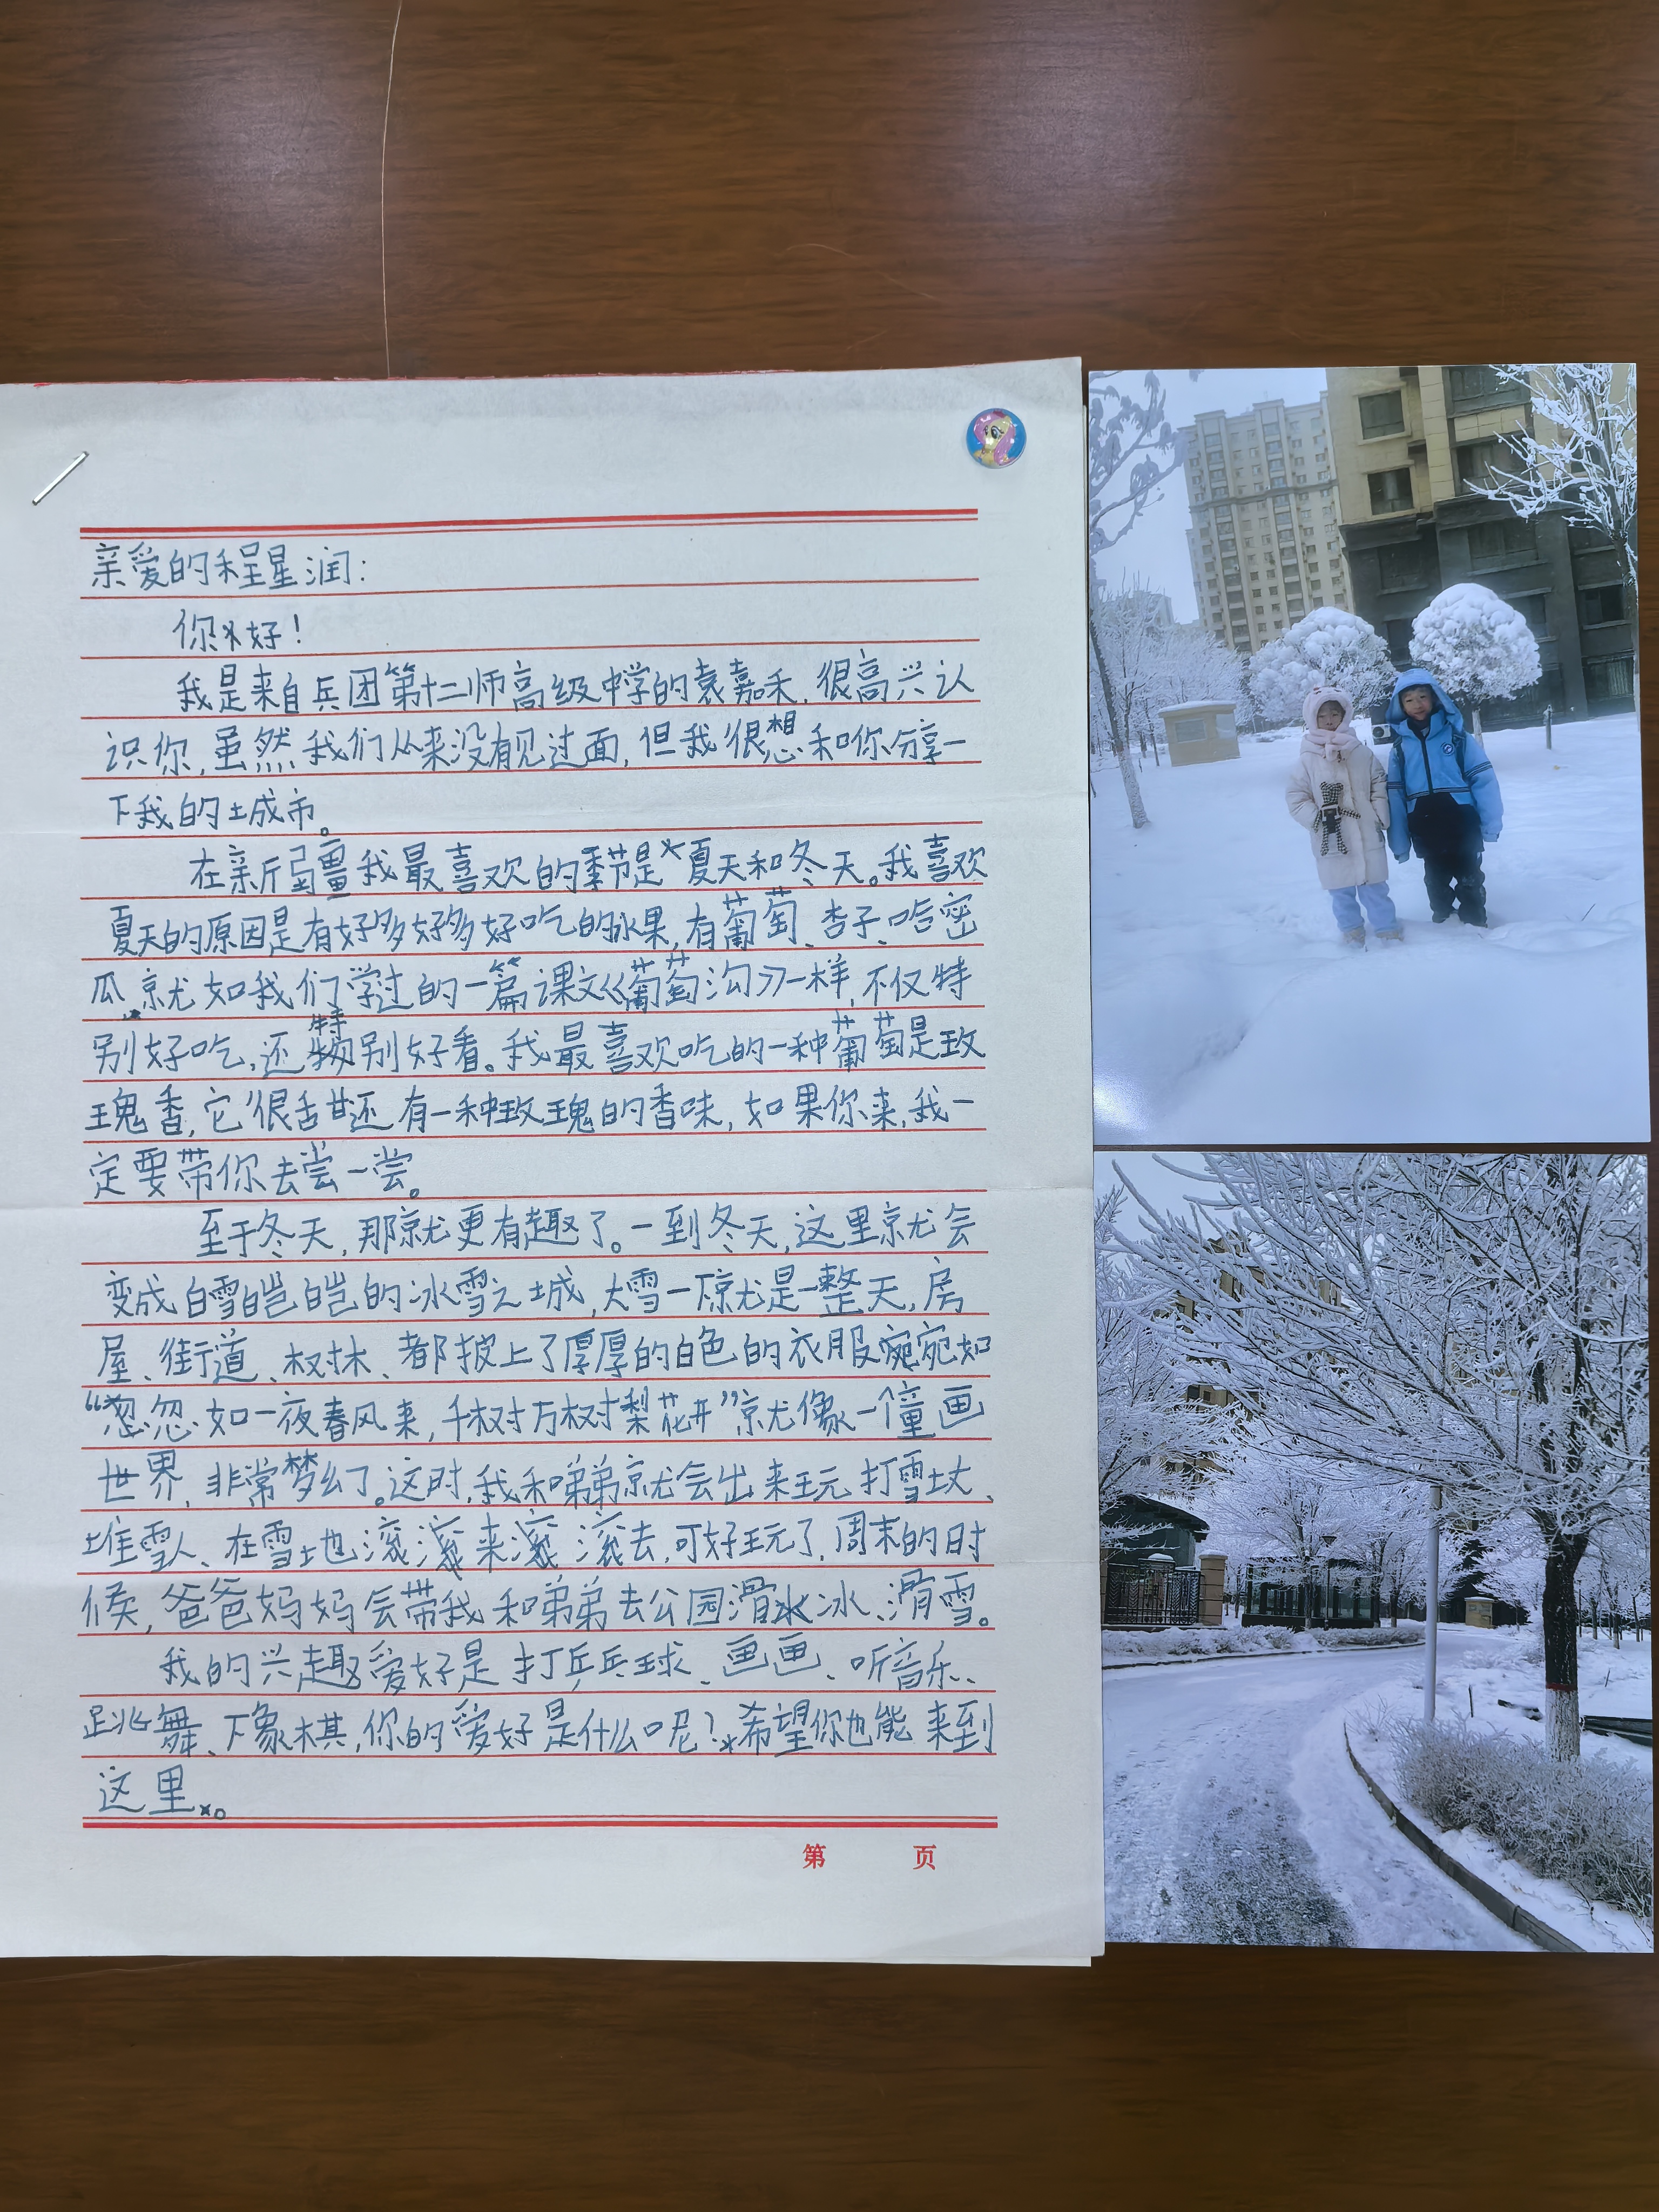 亲爱的程星润：
你好！
我是来自兵团第十二师高级中学的袁嘉禾，很高兴认
识你，虽然我们从来没有见过面，但我很想和你分享一
下我的城市。
在新疆我最喜欢的季节是夏天和冬天。我喜欢
夏天的原因是有好多好多好吃的水果，有葡萄、杏子、哈密
瓜，就如我们学过的一篇课文《葡萄沟》一样，不仅特
别好吃，还特别好看。我最喜欢吃的一种葡萄是玫
瑰香，它很甜还有一种玫瑰的香味，如果你来，我一
定要带你去尝一尝。
至于冬天，那就更有趣了。一到冬天，这里就会
变成白雪皑皑的冰雪之城，大雪一下就是一整天，房
屋、街道、树木、都披上了厚厚的白色的衣服宛如
“忽如一夜春风来，千树万树梨花开”就像一个童画
世界，非常梦幻了。这时，我和弟弟就会出来玩打雪丈、
堆雪人、在雪地滚来滚去，可好玩了，周末的时
候，爸爸妈妈会带我和弟弟去公园滑冰、滑雪。
我的兴趣爱好是打乒乓球、画画、听音乐、
跳舞、下象棋，你的爱好是什么呢？希望你也能来到
这里。
第 页